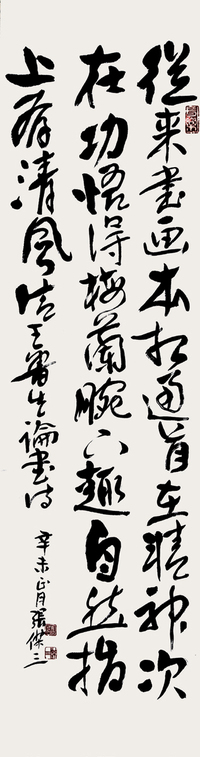 從来書画本相通首在精神次
在功悟得梅蘭腕下趣自然指
上有清風王生論書詩
辛未正月張傑三